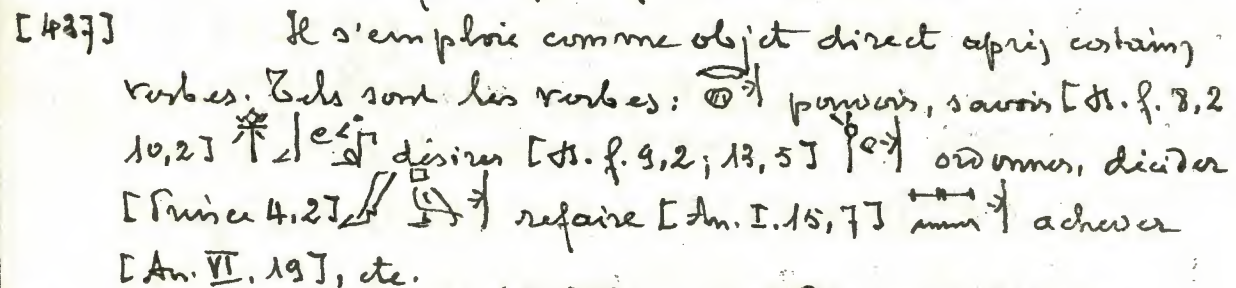 [437] Il s'emploie comme objet direct après certains
verbes. Tels sont les verbes: pouvoir, savoir [H. f. 8,2
10,2] désirer [H. f. 9,2; 13,5] ordonner, décider
[Prince 4,2] refaire [An. I. 15,7] achever
[An. VI. 19], etc.